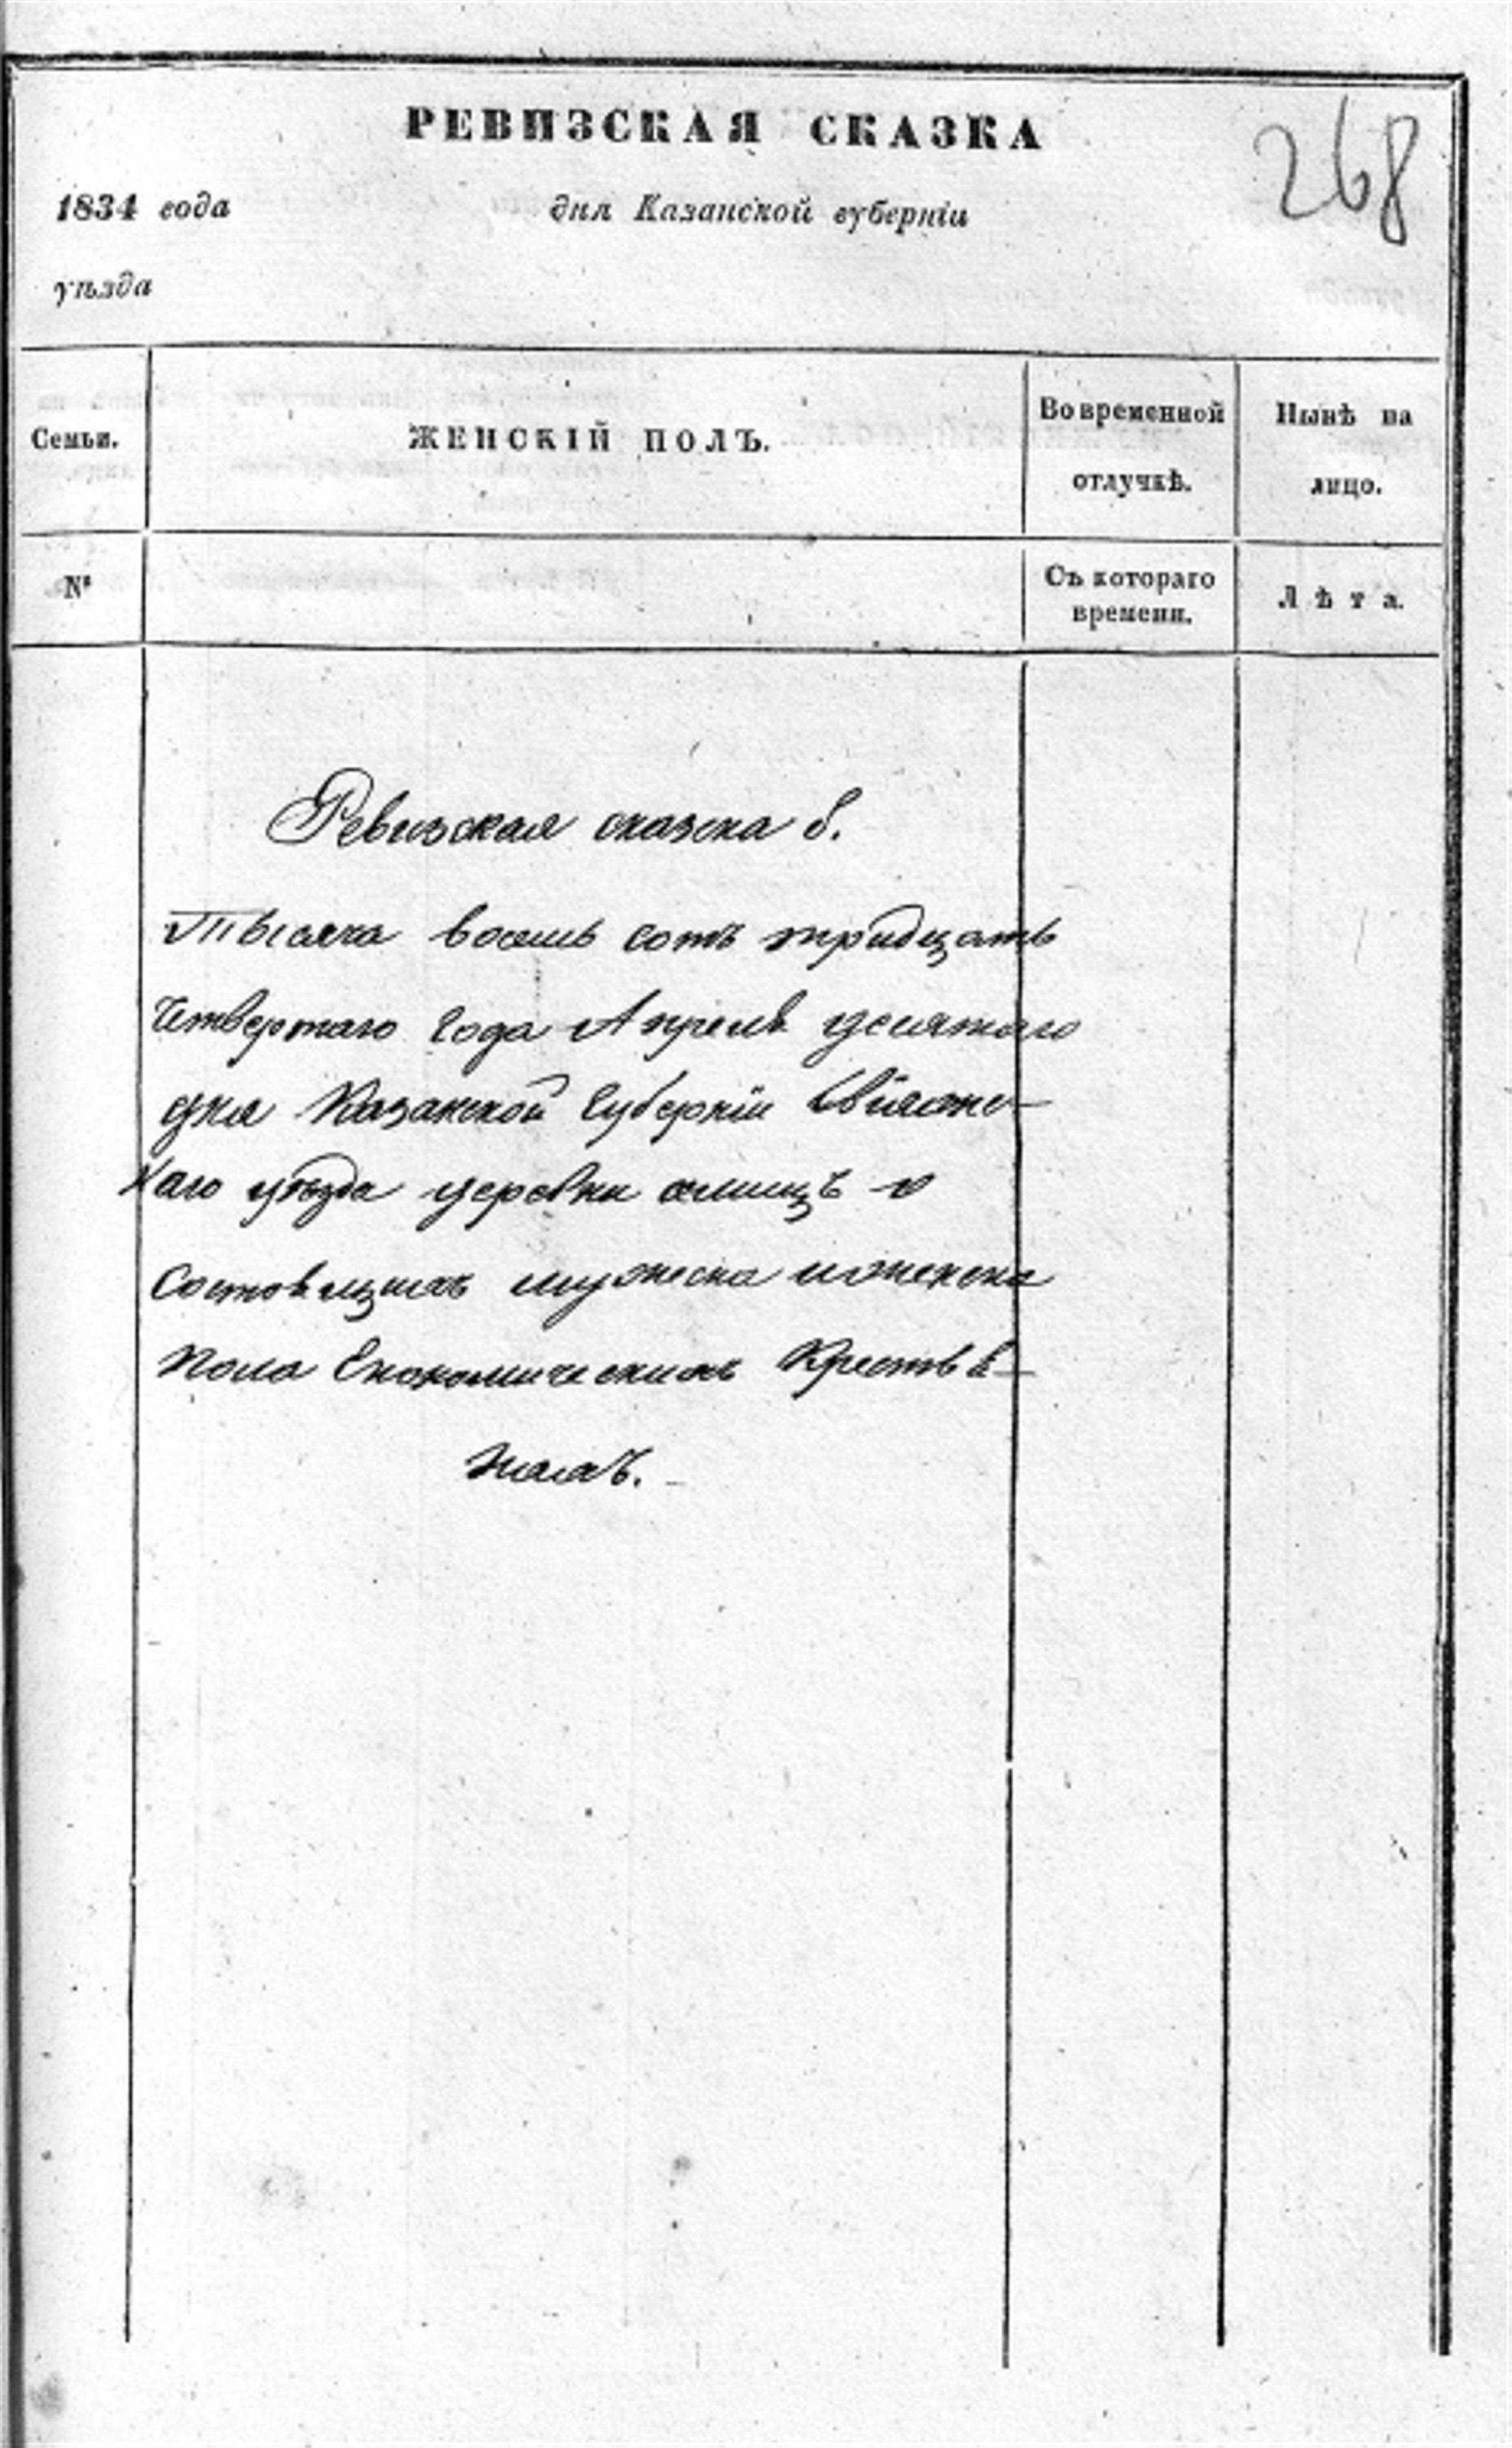 РЕВИЗСКАЯ СКАЗКА
268
1834 года дня Казанской губерніи
уѣзда
Семьи.
ЖЕНСКІЙ ПОЛЪ.
Во временной
отлучкѣ.
Нынѣ на
лицо.
№
Съ котораго
времени.
Лѣта.
Ревизская сказка
Тысяча восемь сотъ тридцать
четвертаго года Апреля десятаго
дня Казанской Губерніи Свіяжс-
каго уѣзда деревни о
состоящихъ мужеска и женска
пола Економическихъ Крестья-
нахъ.